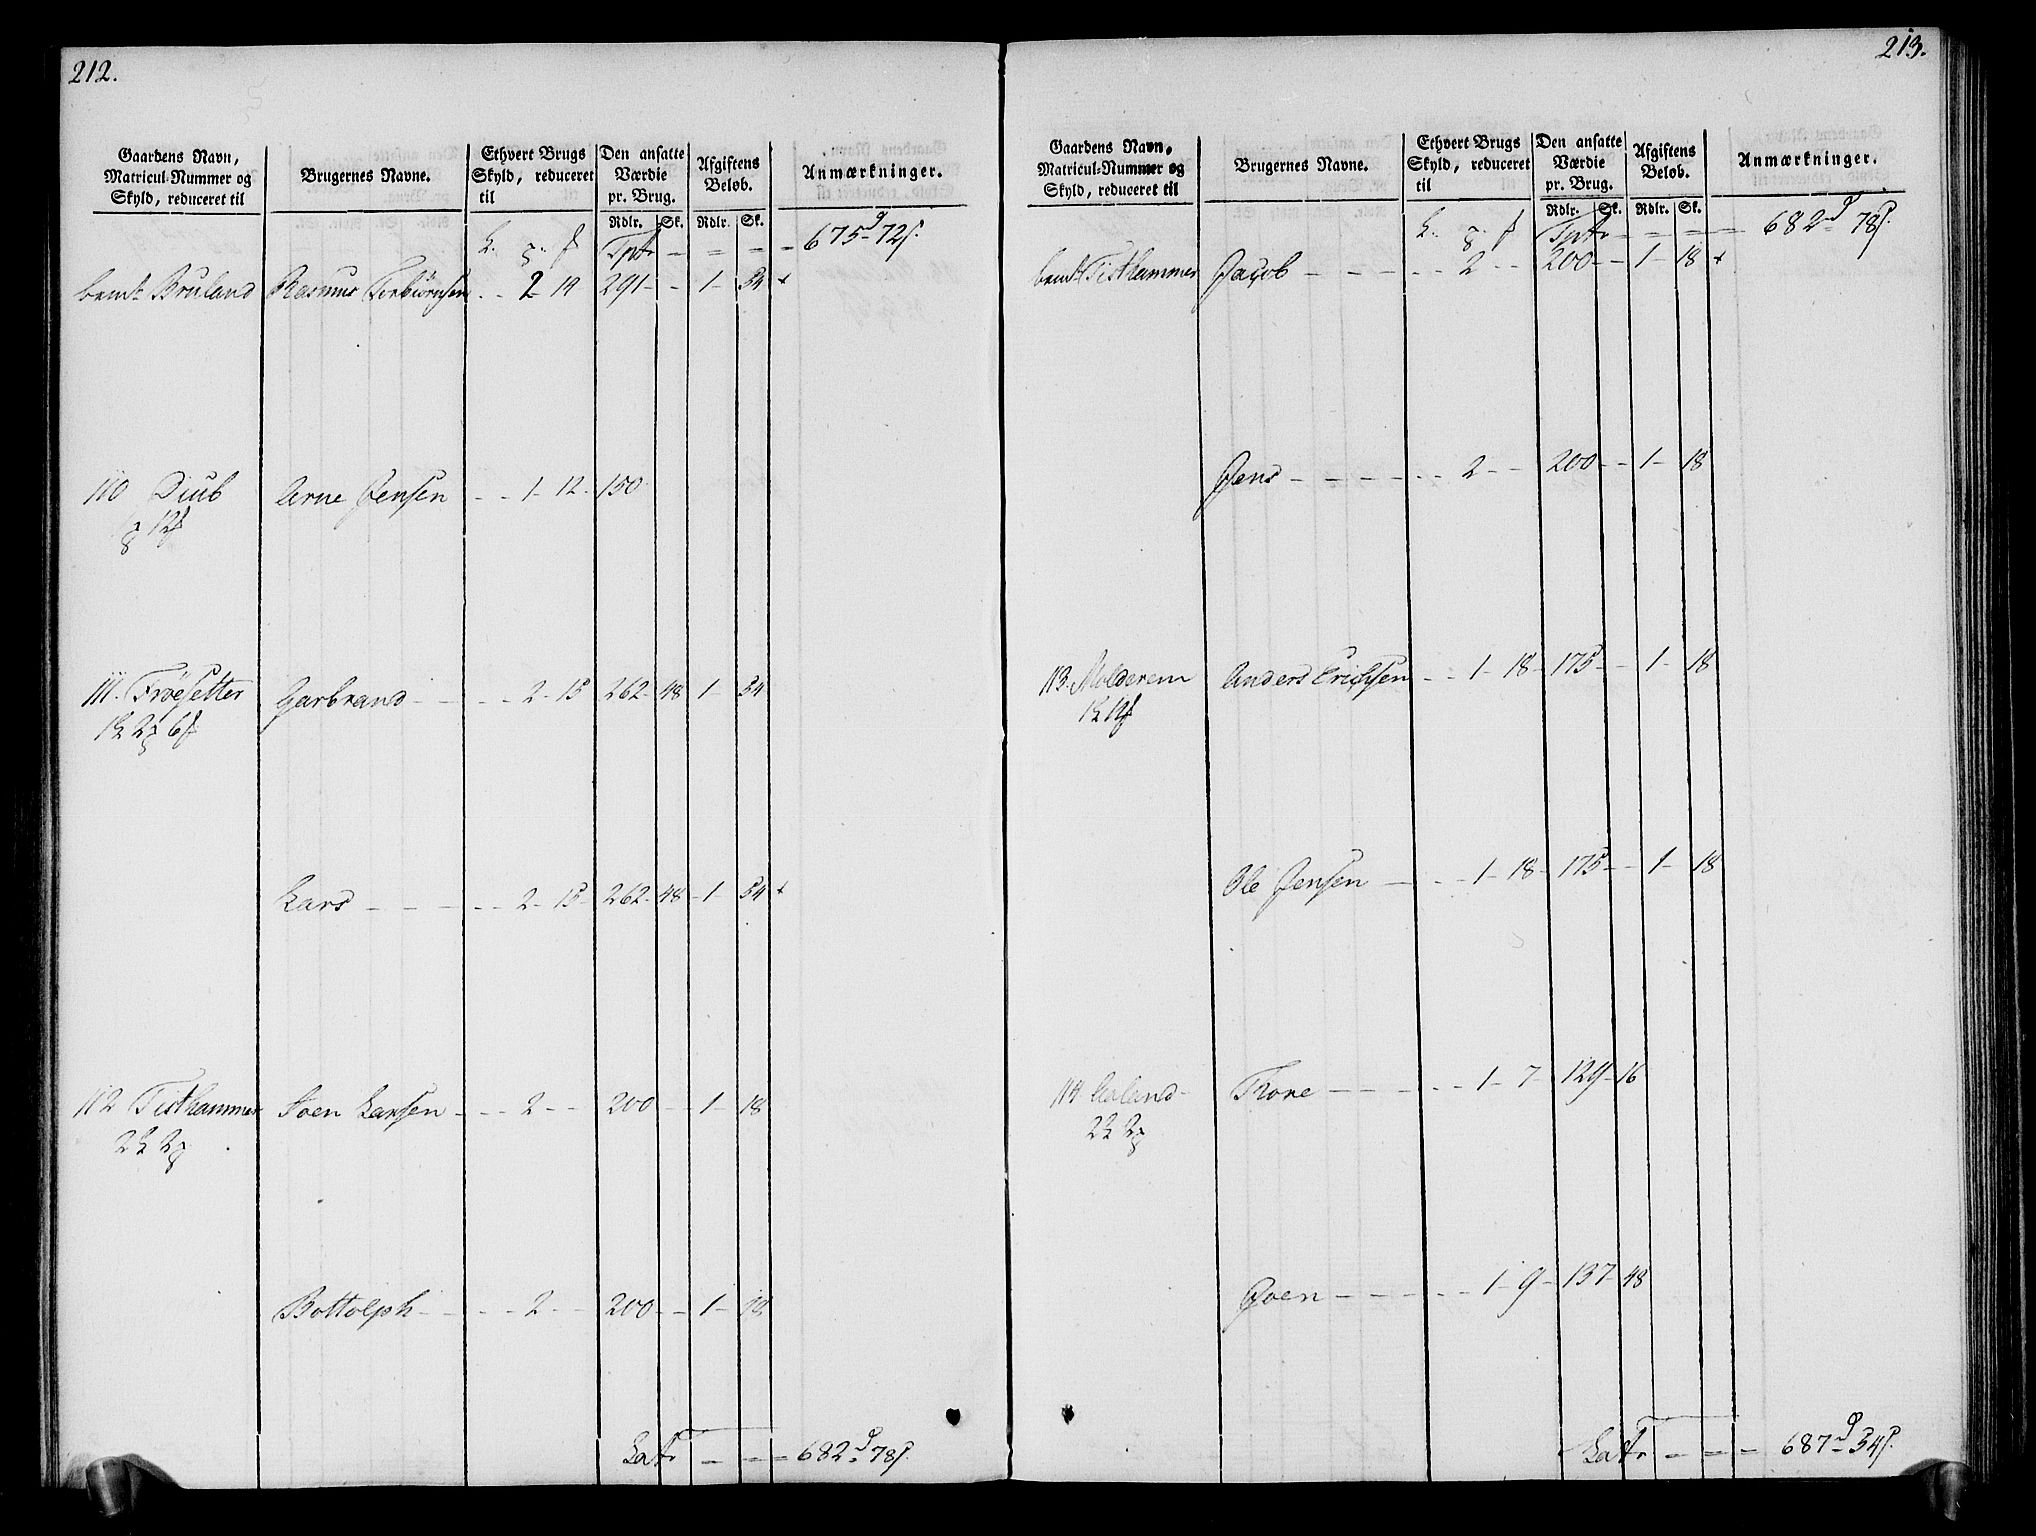 212.
Gaardens Navn, Matricul-Nummer og Skyld, reduceret til
Brugernes Navne.
Ethvert Brugs Skyld, reduceret til
Den ansatte Værdie pr. Brug.
Afgiftens Beløb.
Anmærkninger.
Rdlr. Sk. Rdlr. Sk.
Tptr - = = = 675 - 72
bemt Bruland Rasmus Torbiörnsen - - 2 - 19 291 - - 1 - 54 +
110 Diub Arne Jensen - - 1 - 12 - 150
12
111. Fröesetter Garbrand - - - - 2 - 15 262 - 48 1 - 54
1 2 6
Lars - - - - - 2 - 15 - 262 - 48 - 1 - 54 +
112 Tisthammer Joen Larsen - - - 2 - - 200 - - 1 - 18
2 2
Bottolph - - - - 2 - - 200 - - 1 - 18
Latr - = = 682 - 78
213.
Gaardens Navn, Matricul-Nummer og Skyld, reduceret til
Brugernes Navne.
Ethvert Brugs Skyld, reduceret til
Den ansatte Værdie pr. Brug.
Afgiftens Beløb.
Anmærkninger.
Rdlr. Sk. Rdlr. Sk.
Tptr - = = = 682 - 78
bemt Tisthammer Jacob - - - - - - 2 - - 200 - - 1 - 18 +
Jens - - - - - - 2 - - 200 - - 1 - 18
113. Molderem Anders Erichsen - - 1 - 18 - 175 - - 1 - 18
1 12
Ole Jensen - - - 1 - 18 - 175 - - 1 - 18
114 Aaland - Thore - - - - - 1 - 7 - 129 - 16
2 2
Joen - - - - - - 1 - 9 - 137 - 48
Latr - = = - 687 - 54